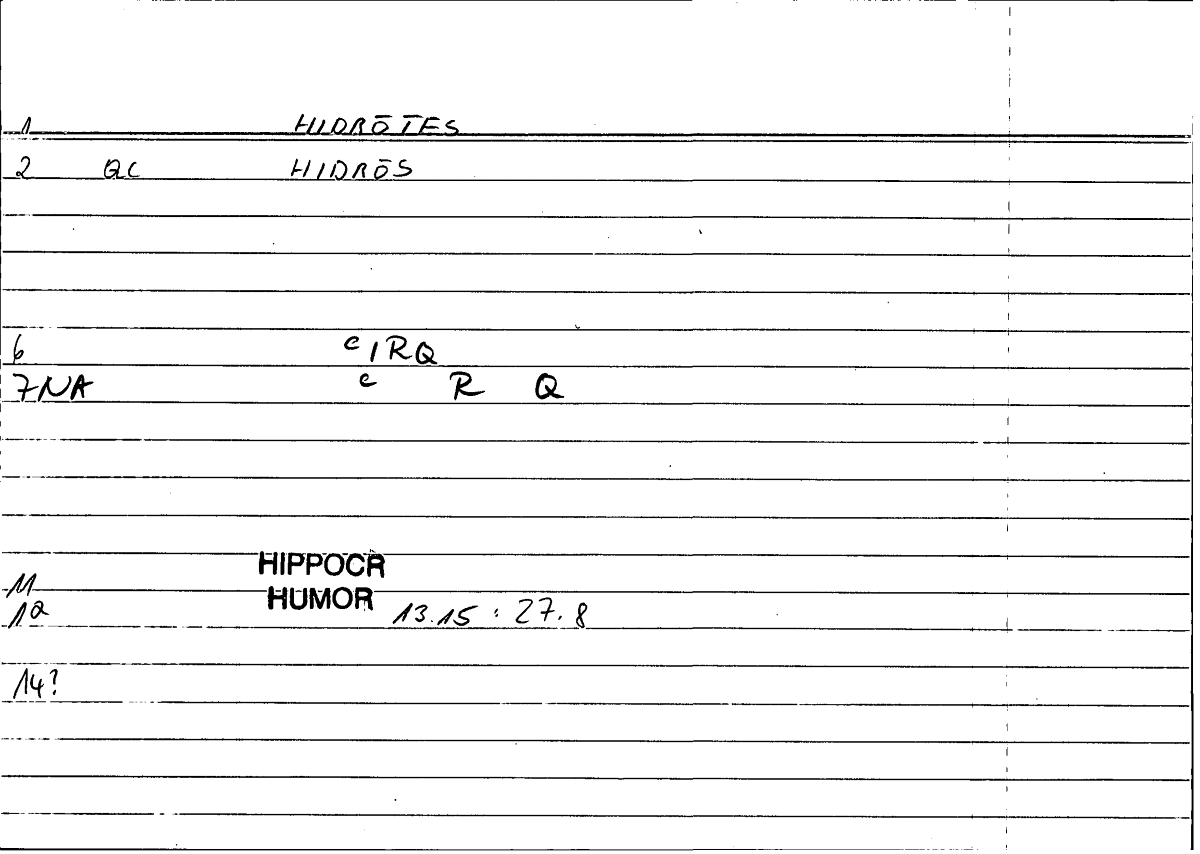 1 HIDRŌTES
2 QC HIDRŌS
6 ᶜIRQ
7NA ᶜ R Q
11 HIPPOCR
12 HUMOR 13.15 : 27.8
14?